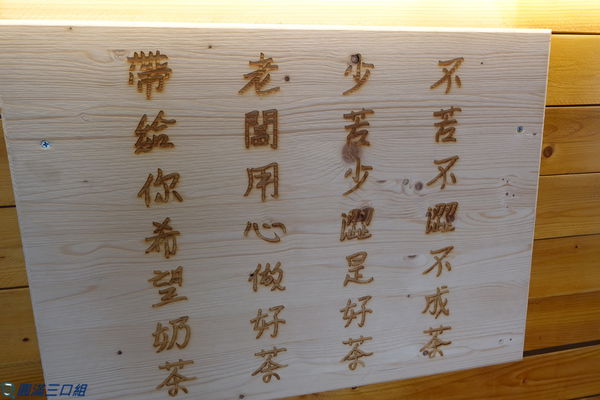 不苦不澀不成茶
少苦少澀是好茶
老闆用心做好茶
帶給你希望奶茶
圓滿三口組